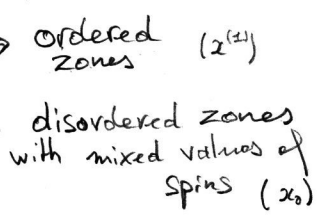 ordered (x^(1))
zones
disordered zones
with mixed values of
spins (x₀)